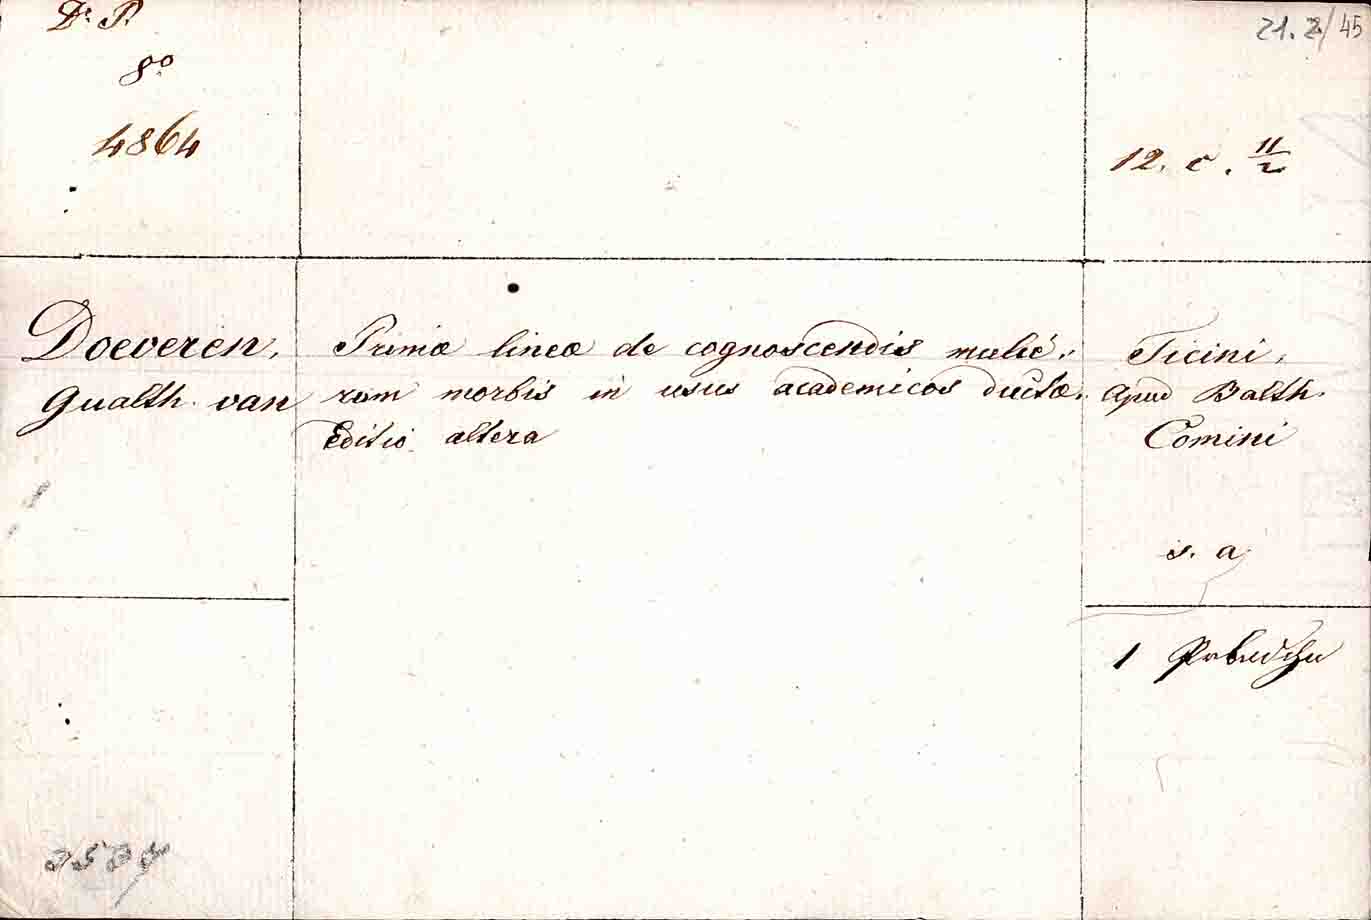 D. P.
8º
4864
21.2/45
12. c. 11/2
Doeveren,
Gualth. van
Primæ lineæ de cognoscendis mulie-
rum morbis in usus academicos ductæ.
Editio altera
Ticini,
apud Balth.
Comini
s. a
1